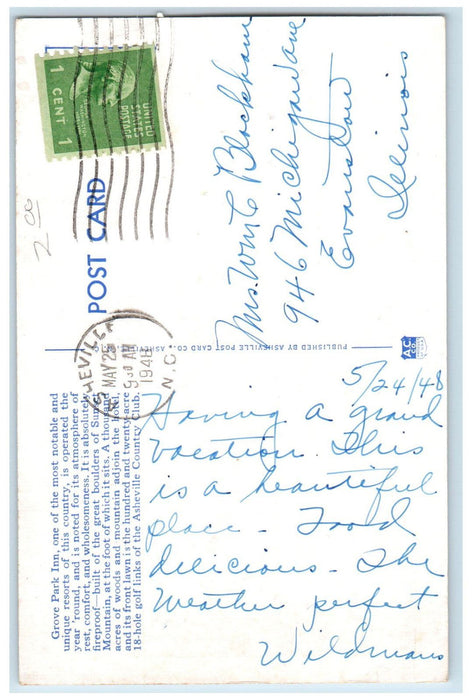 Grove Park Inn, one of the most notable and
unique resorts of this country, is operated the
year 'round, and is noted for its atmosphere of
rest, comfort, and wholesomeness. It is absolutely
fireproof—built of the great boulders of Sunset
Mountain, at the foot of which it sits. A thousand
acres of woods and mountain adjoin the hotel,
and its front lawn is the hundred and twenty-acre
18-hole golf links of the Asheville Country Club.
POST CARD
PUBLISHED BY ASHEVILLE POST CARD CO., ASHEVILLE
AC
CO.
ASHEVILLE
MAY 25
9 30 AM
1948
N.C.
UNITED
STATES
POSTAGE
1 CENT 1
2 00
5/24/48
Having a grand
vacation. This
is a beautiful
place - Food
delicious - The
weather perfect
Wildmans
Mrs. Wm C Blockham
946 Michigan Ave
Evanston
Illinois